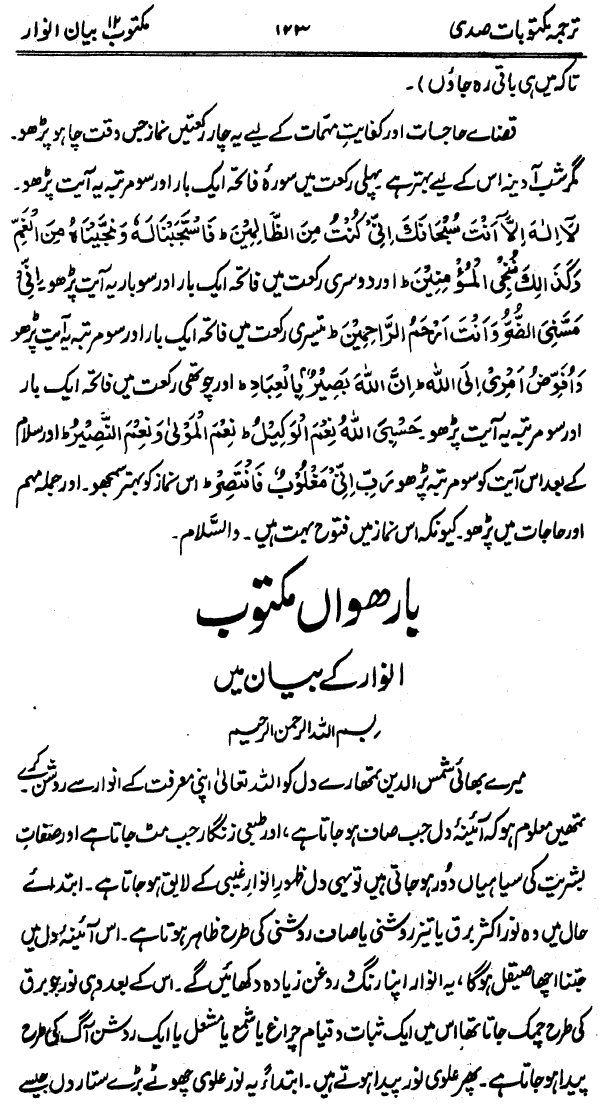 ترجمہ مکتوبات صدی ۱۲۳ مکتوب ۱۲ بیان انوار
تاکہ میں ہی باقی رہ جاؤں)۔
قضائے حاجات اور کفایتِ مہمات کے لیے یہ چار رکعتیں نماز جس وقت چاہو پڑھو۔
مگر شبِ آدینہ اس کے لیے بہتر ہے پہلی رکعت میں سورۂ فاتحہ ایک بار اور سو مرتبہ یہ آیت پڑھو۔
لَآ اِلٰہَ اِلَّآ اَنْتَ سُبْحَانَکَ اِنِّیْ کُنْتُ مِنَ الظَّالِمِیْنَ ط فَاسْتَجَبْنَا لَہٗ وَنَجَّیْنَاہُ مِنَ الْغَمِّ
وَکَذَالِکَ نُنْجِی الْمُؤْمِنِیْنَ ط اور دوسری رکعت میں فاتحہ ایک بار اور سو بار یہ آیت پڑھو اِنِّیْ
مَسَّنِیَ الضُّرُّ وَاَنْتَ اَرْحَمُ الرَّاحِمِیْنَ ط تیسری رکعت میں فاتحہ ایک بار اور سو مرتبہ یہ آیت پڑھو
وَاُفَوِّضُ اَمْرِیْ اِلَی اللّٰہِ ط اِنَّ اللّٰہَ بَصِیْرٌۢ بِالْعِبَادِ ط اور چوتھی رکعت میں فاتحہ ایک بار
اور سو مرتبہ یہ آیت پڑھو حَسْبِیَ اللّٰہُ نِعْمَ الْوَکِیْلُ ط نِعْمَ الْمَوْلٰی وَنِعْمَ النَّصِیْرُ ط اور سلام
کے بعد اس آیت کو سو مرتبہ پڑھو رَبِّ اِنِّیْ مَغْلُوْبٌ فَانْتَصِرْ ط اس نماز کو بہتر سمجھو۔ اور جملہ مہم
اور حاجات میں پڑھو۔ کیونکہ اس نماز میں فتوح بہت ہیں۔ والسَّلام۔
بارھواں مکتوب
انوار کے بیان میں
بسم اللہ الرحمن الرحیم
میرے بھائی شمس الدین تمھارے دل کو اللہ تعالیٰ اپنی معرفت کے انوار سے روشن کرے
تمھیں معلوم ہو کہ آئینۂ دل جب صاف ہو جاتا ہے، اور طبعی زنگار جب مٹ جاتا ہے اور صفاتِ
بشریت کی سیاہیاں دُور ہو جاتی ہیں تو یہی دل ظہورِ انوارِ غیبی کے لایق ہو جاتا ہے۔ ابتدائے
حال میں وہ نور اکثر برق یا تیز روشنی یا صاف روشنی کی طرح ظاہر ہوتا ہے۔ اس آئینۂ دل میں
جتنا اچھا صیقل ہوگا، یہ انوار اپنا رنگ و روغن زیادہ دکھائیں گے۔ اس کے بعد وہی نور جو برق
کی طرح چمک جاتا تھا اس میں ایک ثبات و قیام چراغ یا شمع یا مشعل یا ایک روشن آگ کی طرح
پیدا ہو جاتا ہے۔ پھر علوی نور پیدا ہوتے ہیں۔ ابتداءً یہ نورِ علوی چھوٹے بڑے ستاروں جیسے